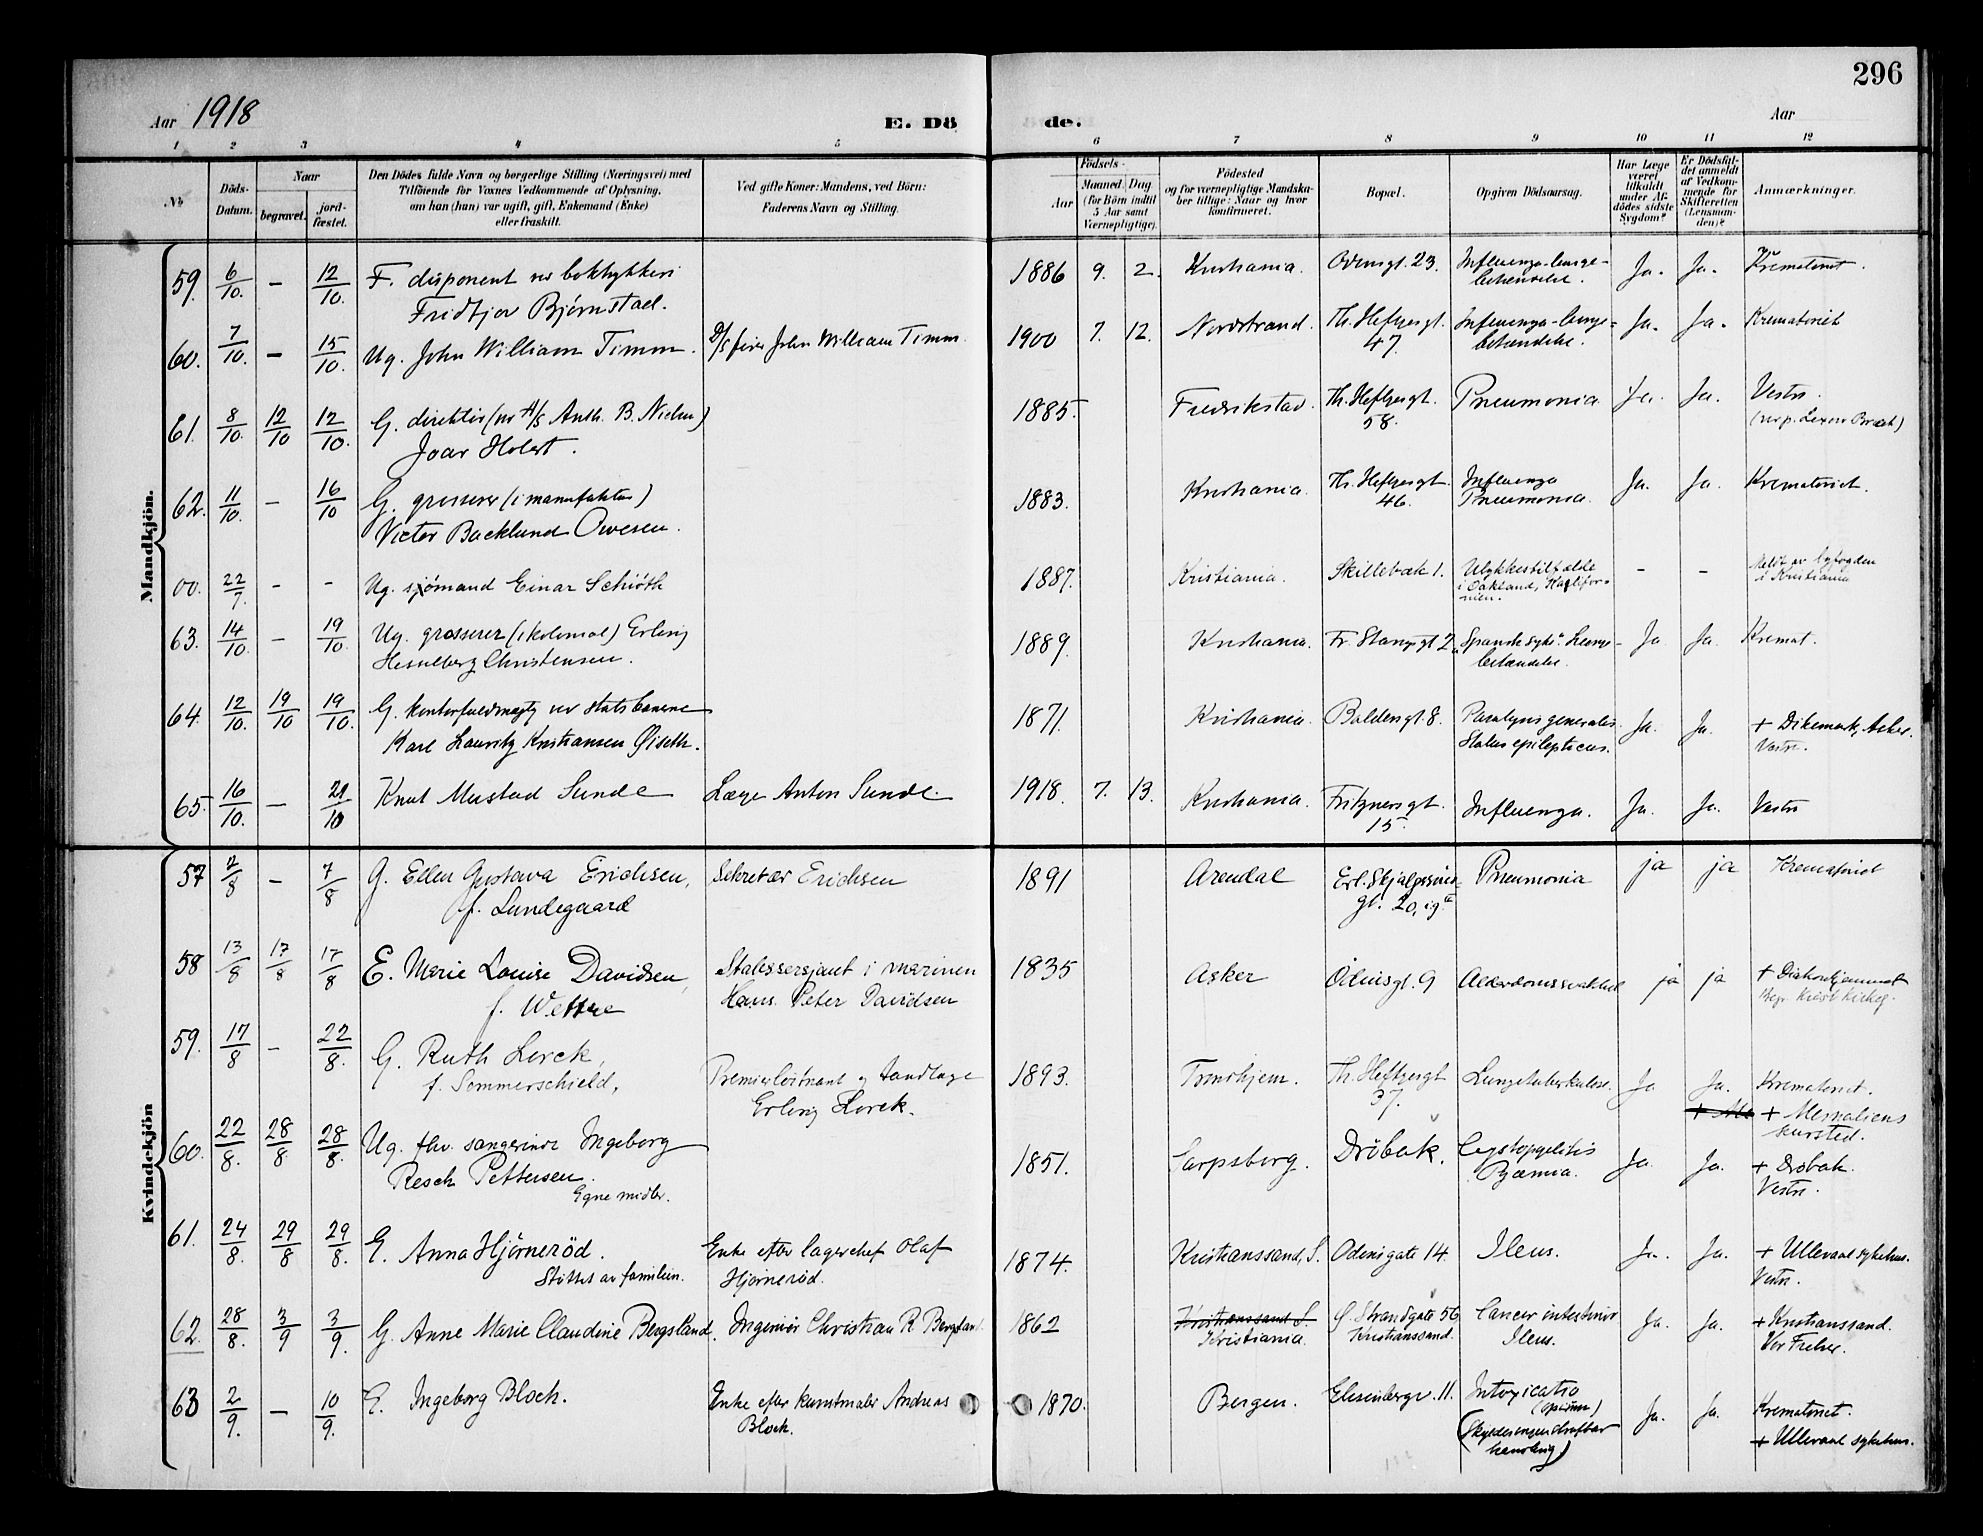 296
Aar 1918
E. Dö
de.
Aar
1 2 3 4 5 6 7 8 9 10 11 12
No
Döds-Datum.
Naar
begravet.
jord-fæstet.
Den Dödes fulde Navn og borgerlige Stilling (Næringsvei) med
Tilföiende for Voxnes Vedkommende af Oplysning,
om han (hun) var ugift, gift, Enkemand (Enke)
eller fraskilt.
Ved gifte Koner: Mandens, ved Börn:
Faderens Navn og Stilling.
Födsels-
Aar
Maaned Dag
(for Börn indtil
5 Aar samt
Værnepligtige).
Födested
og for værnepligtige Mandska-
ber tillige: Naar og hvor
konfirmeret.
Bopæl.
Opgiven Dödsaarsag.
Har Læge
været
tilkaldt
under Af-
dödes sidste
Sygdom?
Er Dödsfal-
det anmeldt
af Vedkom-
mende for
Skifteretten
(Lensman-
den)?
Anmærkninger.
Mandkjön.
59. 6/10. - 12/10. F. disponent Fridtjov Bjørnstad. 1886 9. 2. Kristiania. Odensgt. 23. Influenza-lunge-betændelse. Ja. Ja. Krematoriet.
60. 7/10. - 15/10. Ug. John William Timm. John William Timm. 1900 7. 12. Nordstrand. Th. Heftyesgt. 47. Influenza-lunge-betændelse. Ja. Ja. Krematoriet
61. 8/10. 12/10 12/10. G. direktör (ver A/S Anth. B. Nielsen) Joar Holst. 1885. Fredrikstad. Th. Heftyesgt. 58. Pneumonia Ja. Ja. Vestre.
62. 11/10. - 16/10 G. grosserer (i manufaktur) Victor Backlund Owesen. 1883. Kristiania. Th. Heftyesgt. 46. Influenza Pneumonia. Ja. Ja. Krematoriet.
00. 22/7. - - Ug. sjömand Einar Schiöth 1887. Kristiania. Skillebæk 1. Ulykkestilfælde i Oakland, Kalifornien. - - Meldt av byfogden i Kristiania
63. 14/10. - 19/10. Ug. grosserer (i kolonial) Erling Hesselberg Christensen. 1889. Kristiania. Fr. Stangsgt 2 "Spanske syke" Lunge-betændelse. Ja Ja. Kremat.
64. 12/10. 19/10 19/10. G. kontorfuldmægtig ved statsbanene Karl Lauritz Kristiansen Øiseth. 1871. Kristiania. Baldersgt. 8. Paralysis generalis. Status epilepticus. Ja. Ja. + Dikemark, Asker. Vestre.
65. 16/10. - 21/10 Knut Mustad Sunde Læge Anton Sunde. 1918. 7. 13. Kristiania. Fritznersgt. 15. Influenza. Ja. Ja. Vestre
Kvindekjön
57 2/8 - 7/8 G. Ellen Gustava Erichsen, f. Lundegaard Sekretær Erichsen 1891 Arendal Erl. Skjalgssöns gt. 20, Pneumonia ja ja Krematoriet
58 13/8 17/8 17/8 E. Marie Louise Davidsen, f. Wettre Hans Peter Davidsen 1835 Asker Odinsgt. 9 Alderdomssvakhet ja ja + Diakonhjemmet
59. 17/8 - 22/8. G. Ruth Lorck, f. Sommerschield, Premierløitnant og tandlæge Erling Lorck. 1893. Trondhjem. Th. Heftyesgt 37. Lungetuberkulose. Ja Ja. Krematoriet. + Mesnaliens kursted.
60. 22/8. 28/8 28/8. Ug. fhv. sangerinde Ingeborg Resch Pettersen. Egne midler. 1851. Sarpsborg. Dröbak. Cystopyelitis Pyæmia. Ja. Ja. + Dröbak. Vestre.
61. 24/8. 29/8 29/8. E. Anna Hjörneröd. Støttes av familien. Enke efter lagerchef Olaf Hjörneröd. 1874. Kristianssand, S. Odinsgate 14. Ileus. Ja. Ja. + Ullevaal sykehus. Vestre.
62. 28/8. 3/9 3/9. G. Anne Marie Claudine Bergsland. Ingeniör Christian R. Bergsland 1862 Kristianssand S. Kristiania. Ø. Strandgate 56 Kristianssand. Cancer intestinor Ileus. Ja. Ja. + Kristianssand. Vor Frelser.
63 2/9. - 10/9. E. Ingeborg Bloch. Enke efter kunstmaler Andreas Bloch. 1870. Bergen. Elisenbergv. 11. Intoxicatio (opium) (Skyldes ingen strafbar handling) Ja. Ja. Krematoriet. + Ullevaal sykehus.